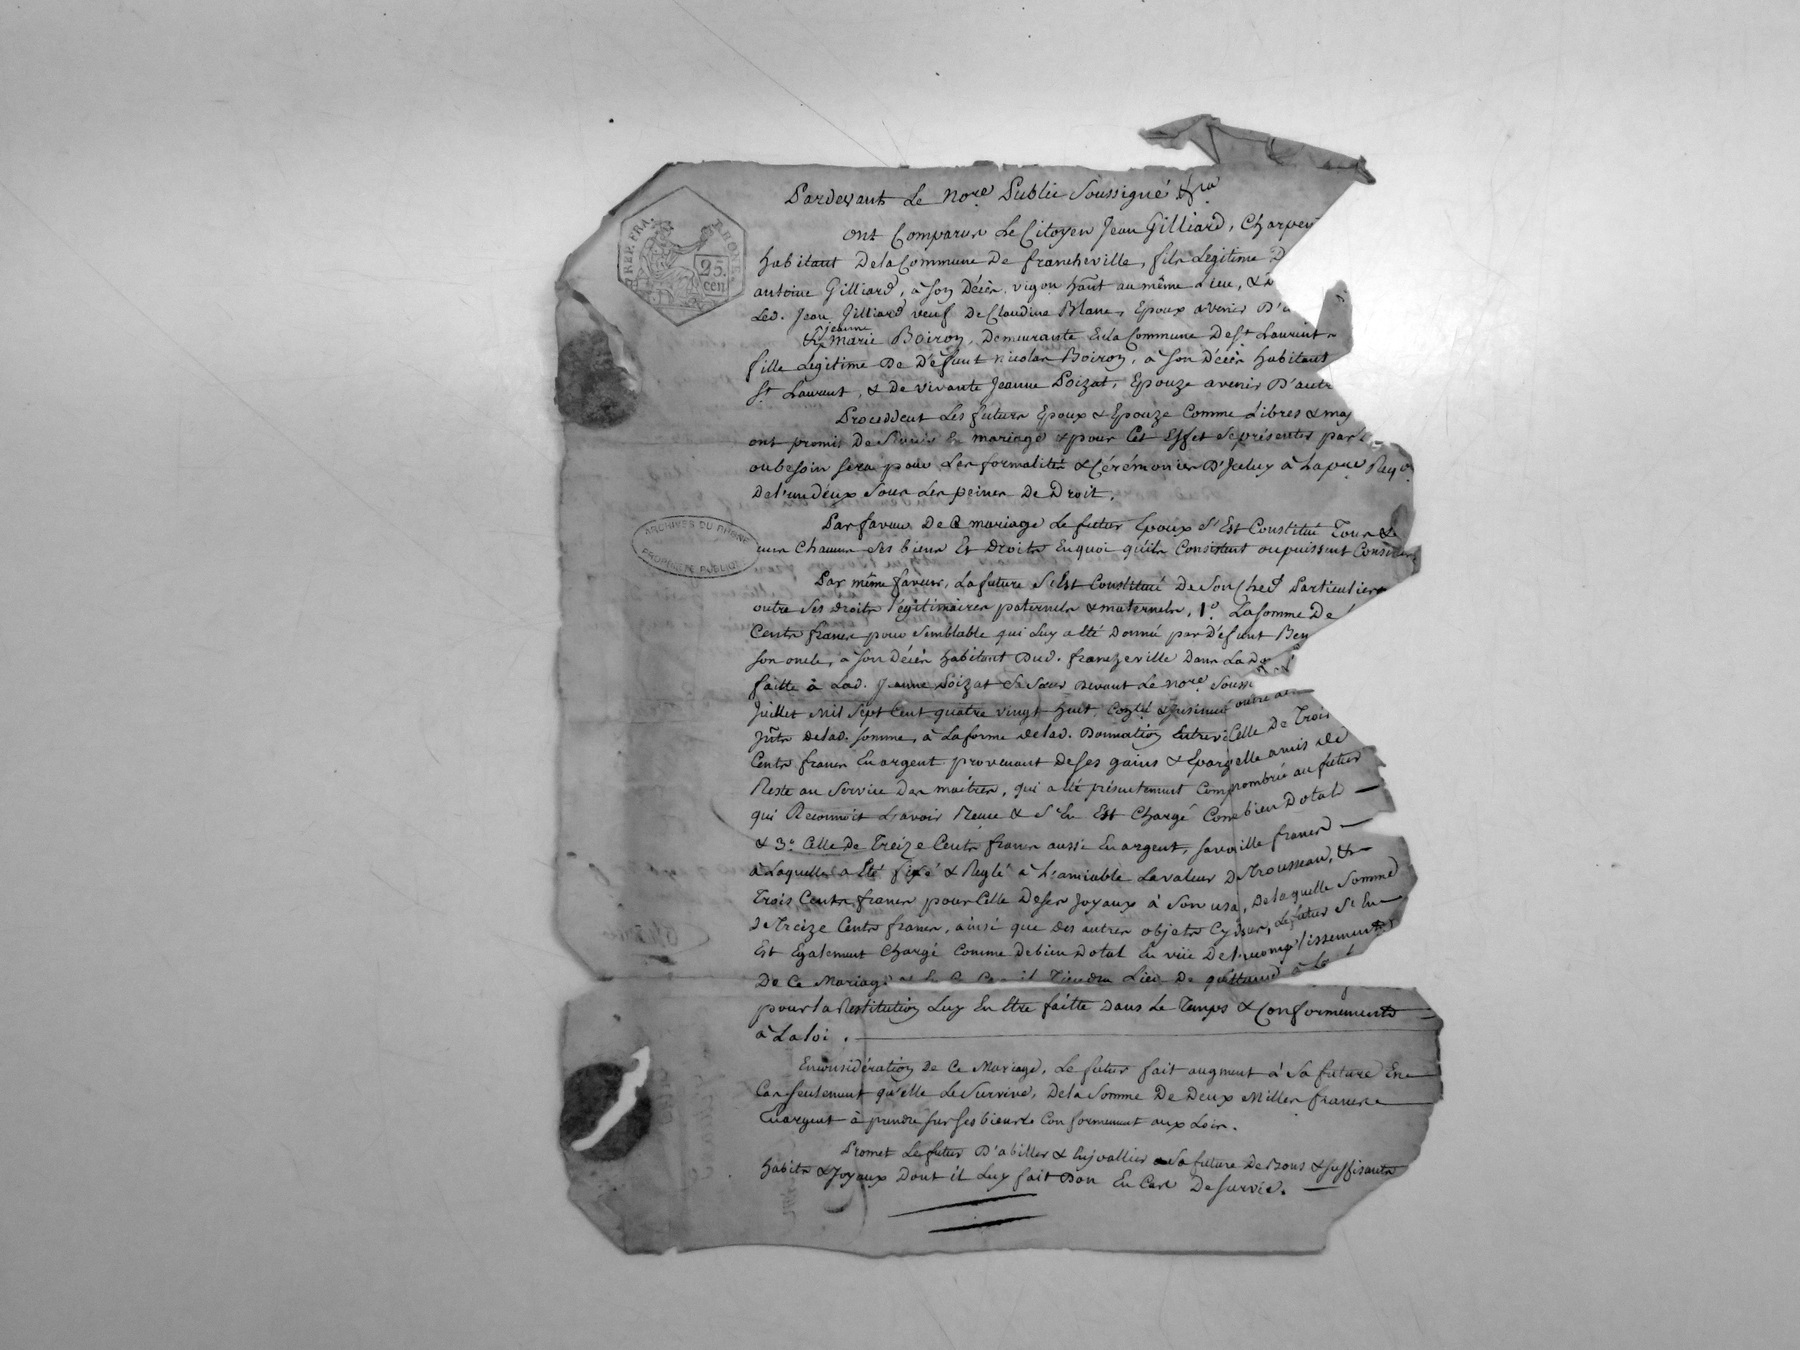 REP. FRA.
RHONE.
25.
cen
Pardevant Le Nore Public Soussigné &
ont Comparus Le Citoyen Jean Gilliard, Charpen
habitant De la Commune De francheville, fils Legitime D
antoine Gilliard, à son Décès vigon hant au même Lieu, &
Led. Jean Gilliard veuf De Claudine Blanc, Epoux avenir D'u
jeanne
& marie Boiron, Demeurante En la Commune De St Laurent
fille Légitime De Défunt nicolas Boiron, à son Décès habitant
St Laurent, & De vivante Jeanne Poizat, Epouze avenir D'autr
Proceddent Les futurs Epoux & Epouze Comme Libres & maj
ont promis De S'unir En mariage & pour Cet Effet Se présenter par
ou besoin sera pour Les formalités & Cérémonies D'Iceluy à La pre Reqon
De l'un d'eux Sous Les peines De Droit.
Par faveur De Ce mariage Le futur Epoux S'Est Constitué Tous &
uns Chacuns Ses biens Et Droits En quoi qu'ils Consistent ou puissent Consister
ARCHIVES DU RHONE
PROPRIÉTÉ PUBLIQUE
Par même faveur, La future S'Est Constitué De Son Chef Particulier
outre Ses Droits légitimaires paternels & maternels, 1°. La Somme De
Cents francs pour Semblable qui Luy a Eté Donné par Défunt Ben
son oncle, à son Décès habitant Dud. francheville Dans La Do
faitte à Lad. Jeanne Poizat Sa Sœur Devant Le Nore Souss
Juillet Mil Sept Cent quatre vingt huit, Contlé & Insinué outre
Jnts De lad. Somme, à La forme De lad. Donnation Celle De Trois
Cents francs En argent provenant De Ses gains & Eparg elle a mis De
Reste au Service Des maitres, qui a Eté présentement Comp nombrée au futur
qui Reconnoit L'avoir Reçue & S'En Est Chargé Come bien Dotal
& 3°. Celle De Treize Cents francs aussi En argent, Savo mille francs
à Laquelle a Eté fixé & Reglé à L'amiable La valeur D Trousseau, &
Trois Cents francs pour Celle De Ses Joyaux à Son usa , De laquelle Somme
De Treize Cents francs, ainsi que Des autres objets Cy , Le futur S'En
Est Egalement Chargé Comme De bien Dotal En vüe De l'accomplissement
De Ce Mariage Tiendra Lieu De quittance à
pour la Restitution Luy En Etre faitte Dans Le Temps & Conformement
à La loi.
En considération De Ce Mariage, Le futur fait augment à Sa future En
Cas Seulement qu'elle Le Survive, De la Somme De Deux Milles francs
En argent à prendre sur Ses biens Conformement aux Loix.
Promet Le futur D'abiller & Enjoallier Sa future De Bons & Suffisants
habits & Joyaux Dont il Luy fait Don En Cas De Survie.